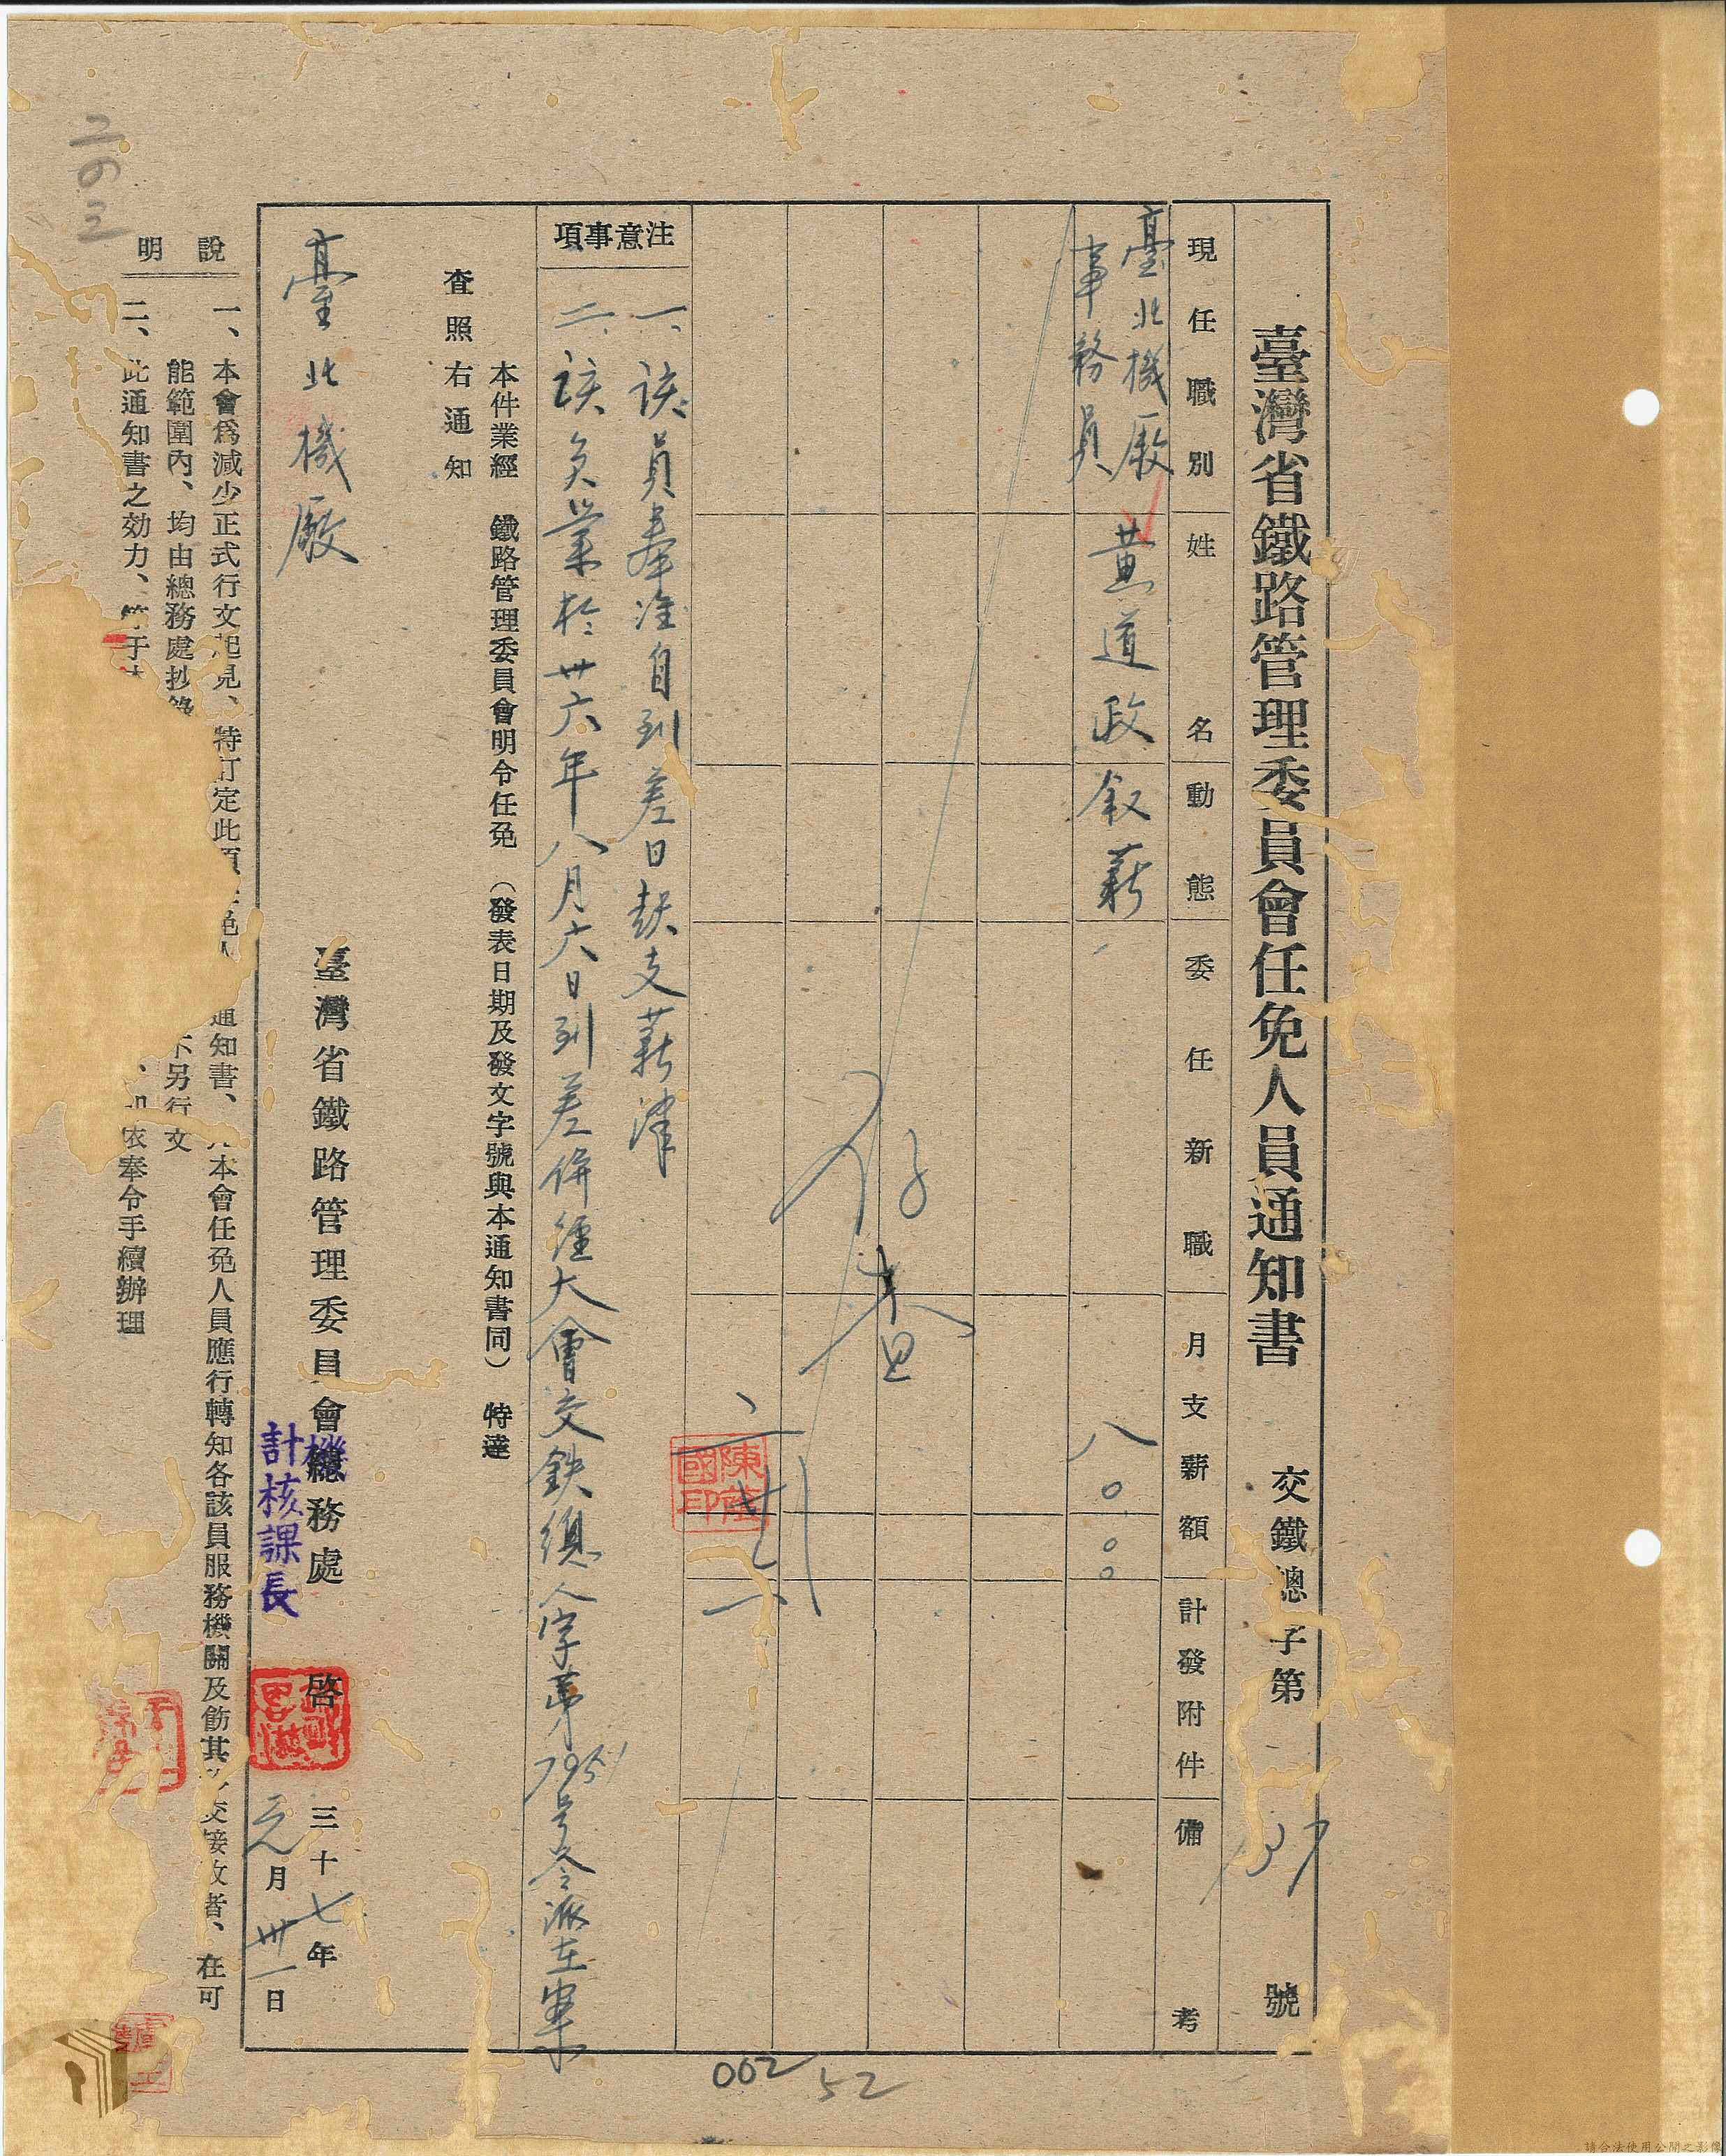 臺灣省鐵路管理委員會任免人員通知書
交鐵總字第137號
現任職別
姓名
動態
委任新職
月支薪額
計發附件
備考
臺北機廠
事務員
黃道政
叙薪
八〇.〇〇
存
查
陳
國印
注意事項
一、該員奉准自到差日起支薪津
二、該員業於卅六年八月六日到差併經大會交鉄總人字第795号令派在案
本件業經 鐵路管理委員會明令任免 (發表日期及發文字號與本通知書同) 特達
查照右通知
臺北機廠
臺灣省鐵路管理委員會總務處 啓
計核課長
三十七年
元月卅一日
說明
一、本會爲減少正式行文起見、特訂定此項 通知書、 本會任免人員應行轉知各該員服務機關及飭其 交接收者、在可
能範圍內、均由總務處抄錄 不另行文
二、此通知書之効力、等于 依奉令手續辦理
002
52
請合法使用公開之影像